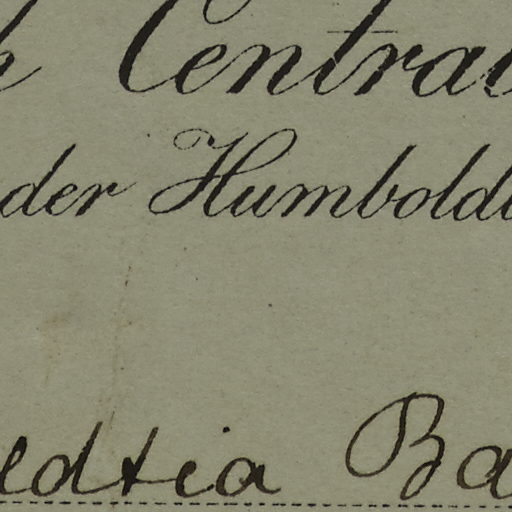 h Central
der Humboldt
edtia Ba